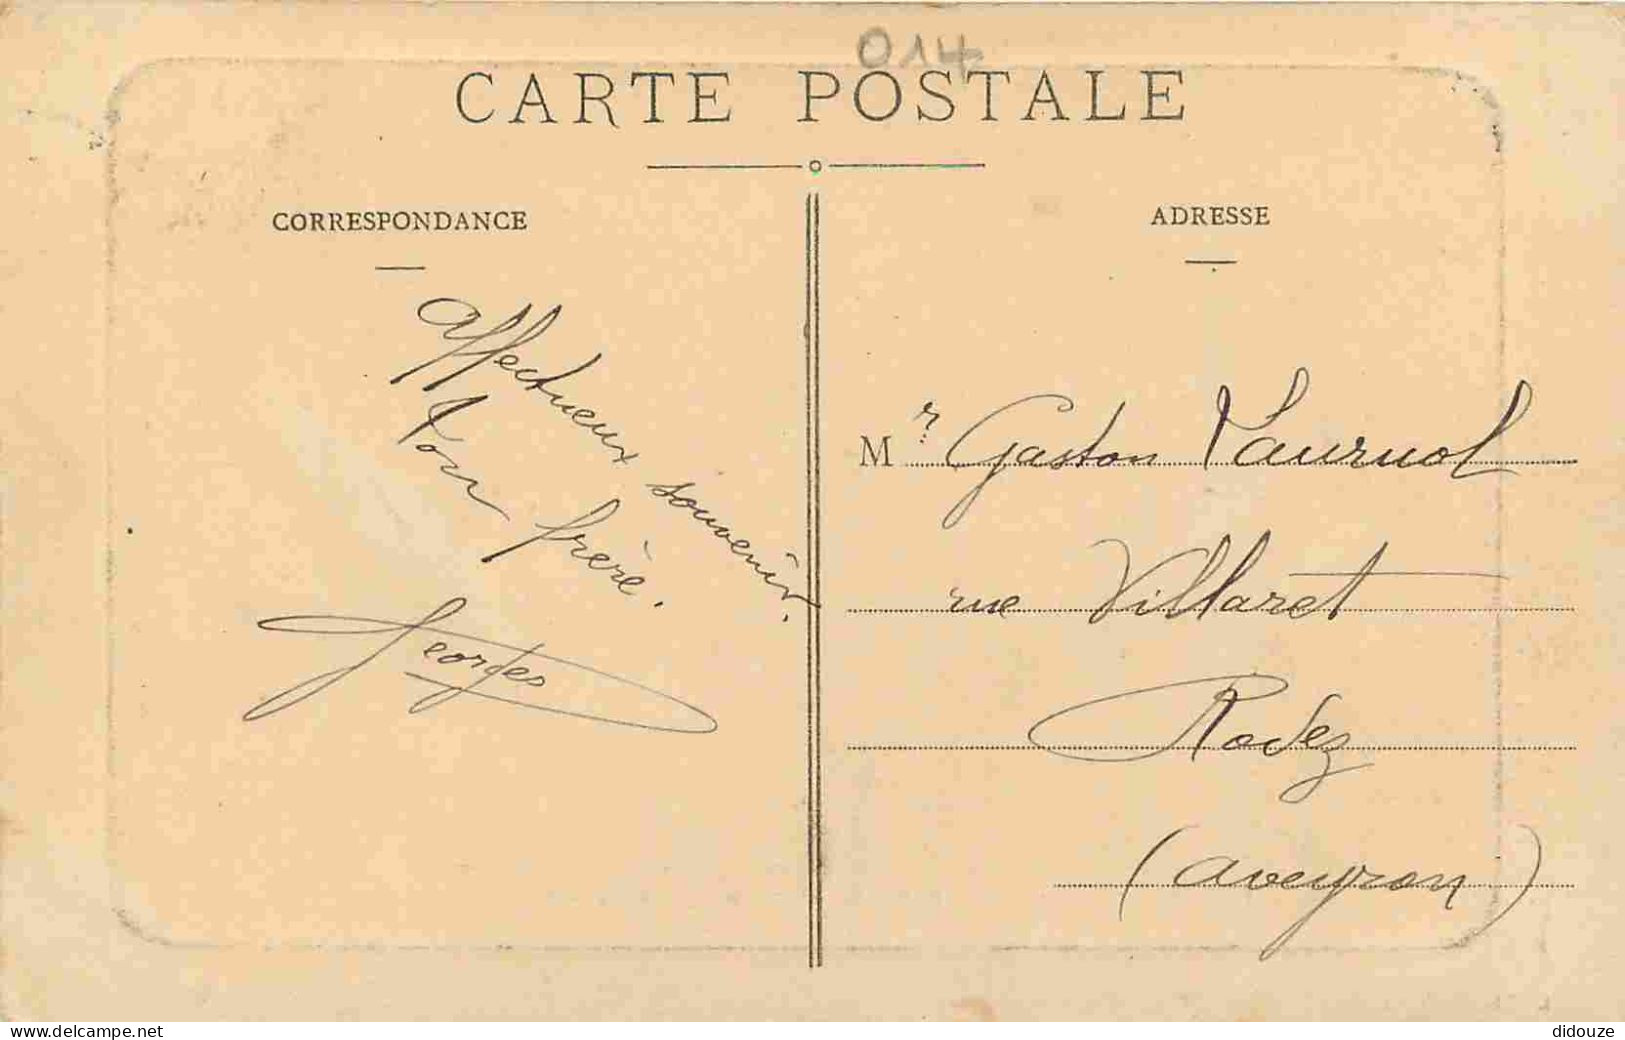 014
CARTE POSTALE
CORRESPONDANCE
ADRESSE
Affectueux souvenir.
Ton frère.
Georges
Mr Gaston
rue Villaret
Rodez
(Aveyron)
www.delcampe.net
didouze